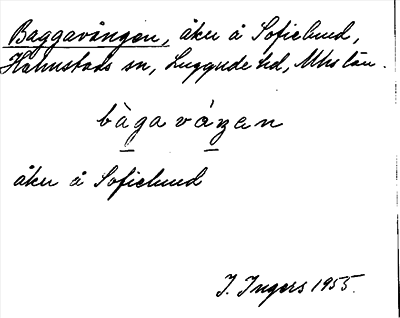 Baggavången, åker å Sofielund,
Halmstads sn, Luggude hd, Mhs län.
bàgaváŋen
åker å Sofielund
I. Ingers 1955.